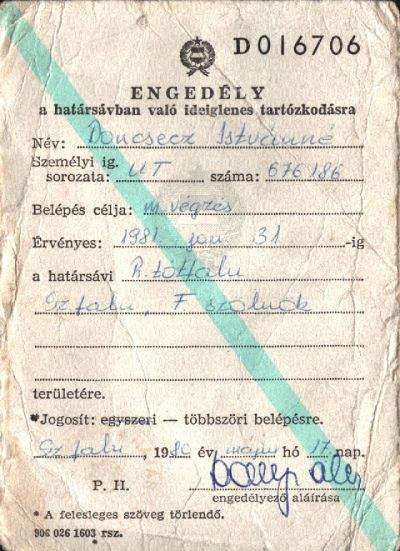 D016706
ENGEDÉLY
a határsávban való ideiglenes tartózkodásra
Név: Doncsecz Istvánné
Személyi ig.
sorozata: UT száma: 676186
Belépés célja: m.végzés
Érvényes: 1981 jan 31 -ig
a határsávi R.tótfalu
Gz falu, F szölnök
területére.
*Jogosít: egyszeri — többszöri belépésre.
Gz falu, 1980 év hó 17 nap.
P. H.
engedélyező aláírása
* A felesleges szöveg törlendő.
906 026 1603 rsz.